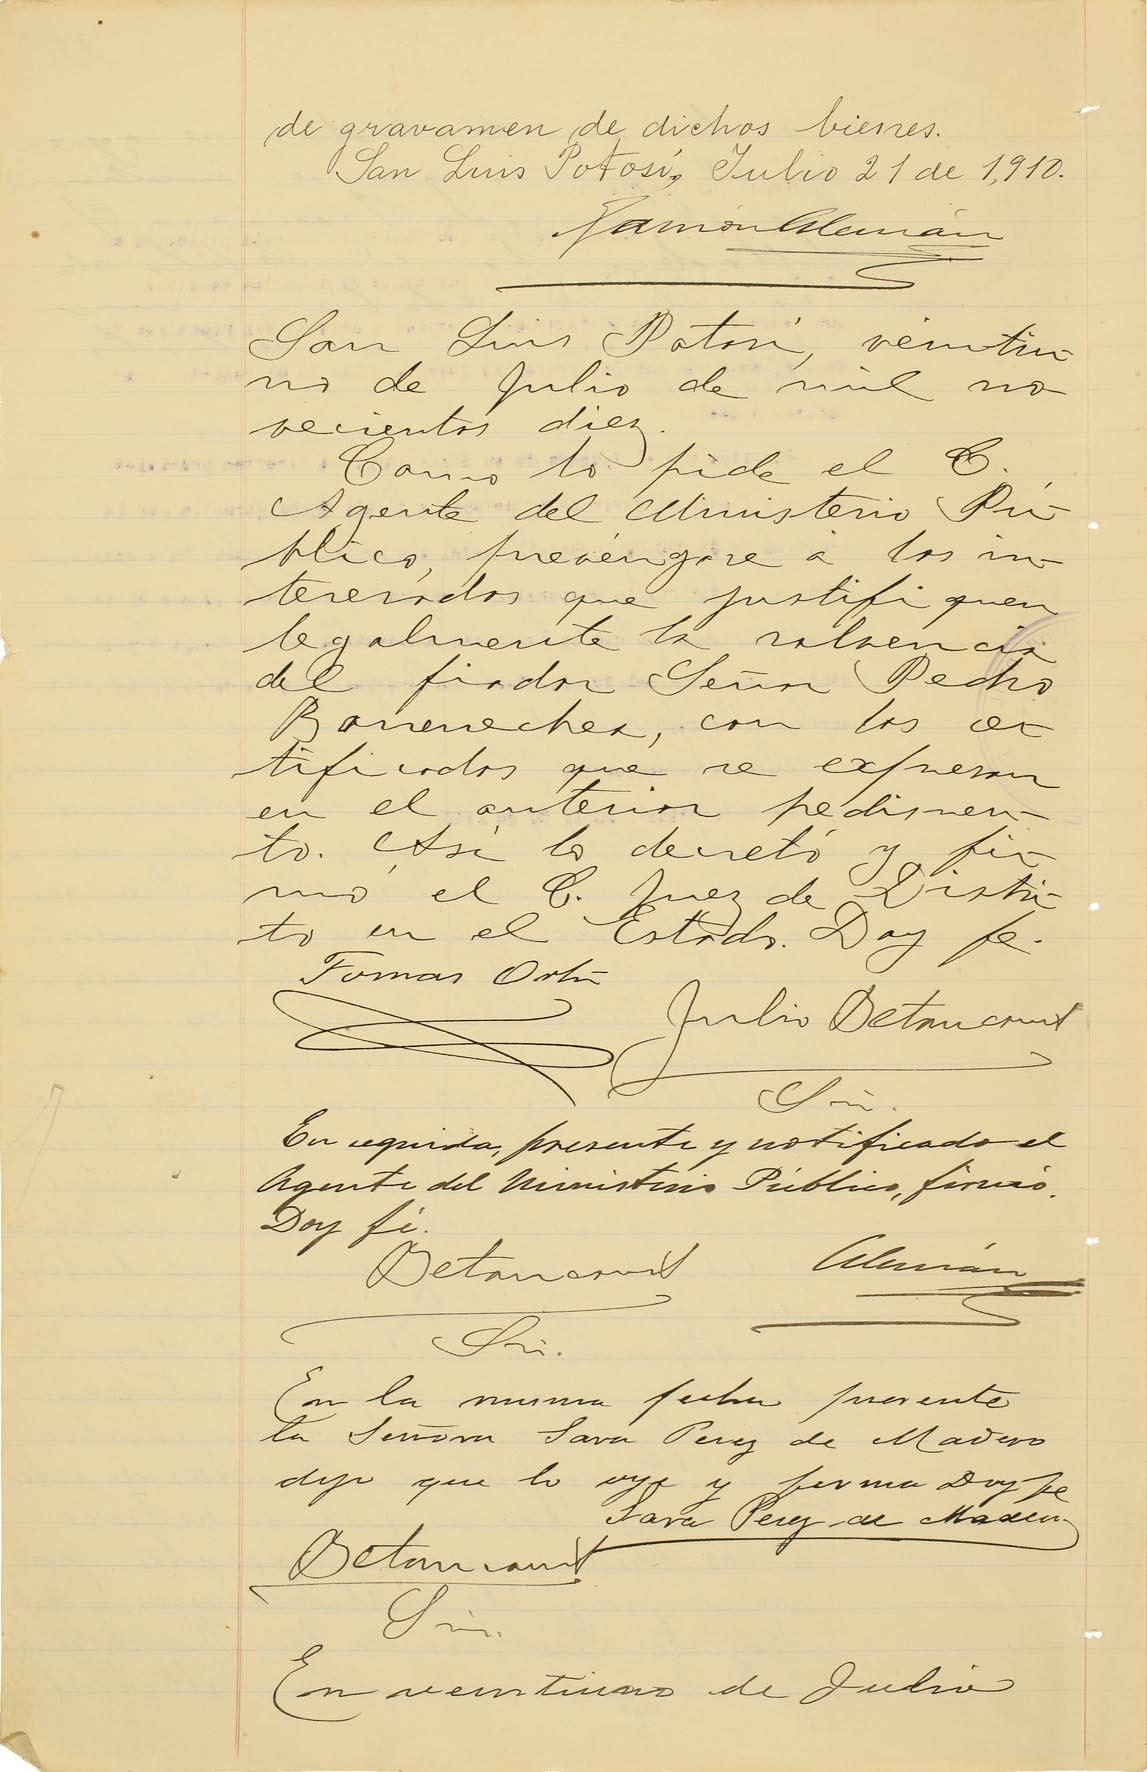 de gravamen de dichos bienes.
San Luis Potosí, Julio 21 de 1,910.
Ramón Alemán
San Luis Potosí, veintiu-
no de Julio de mil no-
vecientos diez.
Como lo pide el C.
Agente del Ministerio Pú-
blico, prevéngase á los in-
teresados que justifiquen
legalmente la solvencia
del fiador Señor Pedro
Barrenechea, con los cer-
tificados que se expresan
en el anterior pedimen-
to. Así lo decretó y fir-
mó el C. Juez de Distri-
to en el Estado. Doy fe.
Tomas Ortiz
Julio Betancourt
Srio.
En seguida, presente y notificado el
Agente del Ministerio Público, firmó.
Doy fé.
Betancourt Alemán
Srio.
En la misma fecha presente
la Señora Sara Perez de Madero
dijo que lo oye y firma Doy fe
Sara Perez de Madero
Betancourt
Srio.
En veintiuno de Julio